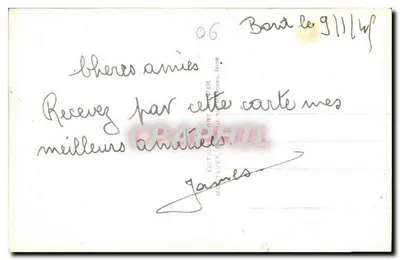 06
Bort le 9/1/45
Chères amies
Recevez par cette carte mes
meilleurs amitiées.
James
CPAPHIL